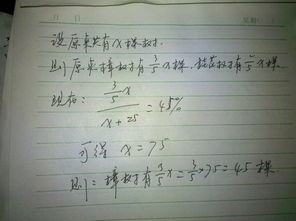 设原来共有x棵树.
则原来樟树有3/5x棵. 桂花树有2/5x棵.
现在: (3/5x)/(x+25) = 45%
可得 x=75
则: 樟树有3/5x=3/5×75=45棵.